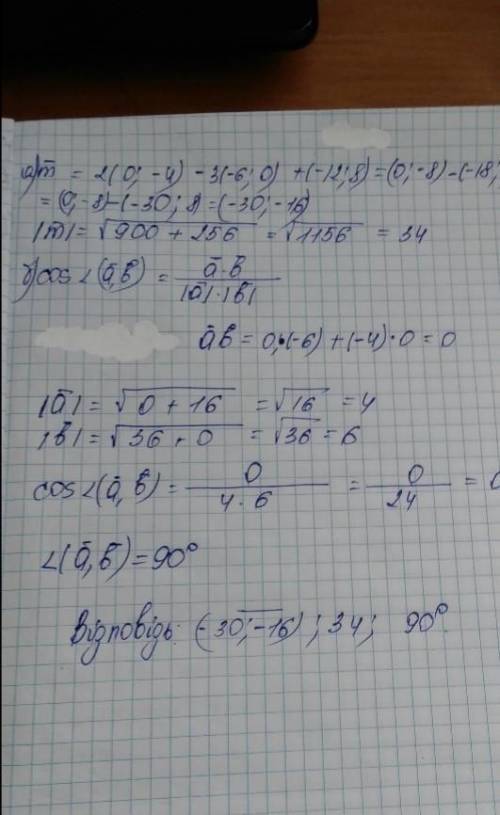 а) m̅ = 2(0; -4) - 3(-6; 0) + (-12; 8) = (0; -8) - (-18;
= (0; -8) - (-30; 8) = (-30; -16)
|m̅| = √900 + 256 = √1156 = 34
б) cos∠(a̅, b̅) = a̅·b̅ / |a̅|·|b̅|
a̅b̅ = 0·(-6) + (-4)·0 = 0
|a̅| = √0 + 16 = √16 = 4
|b̅| = √36 + 0 = √36 = 6
cos∠(a̅, b̅) = 0 / 4·6 = 0 / 24 = 0
∠(a̅, b̅) = 90°
Відповідь: (-30; -16); 34; 90°.